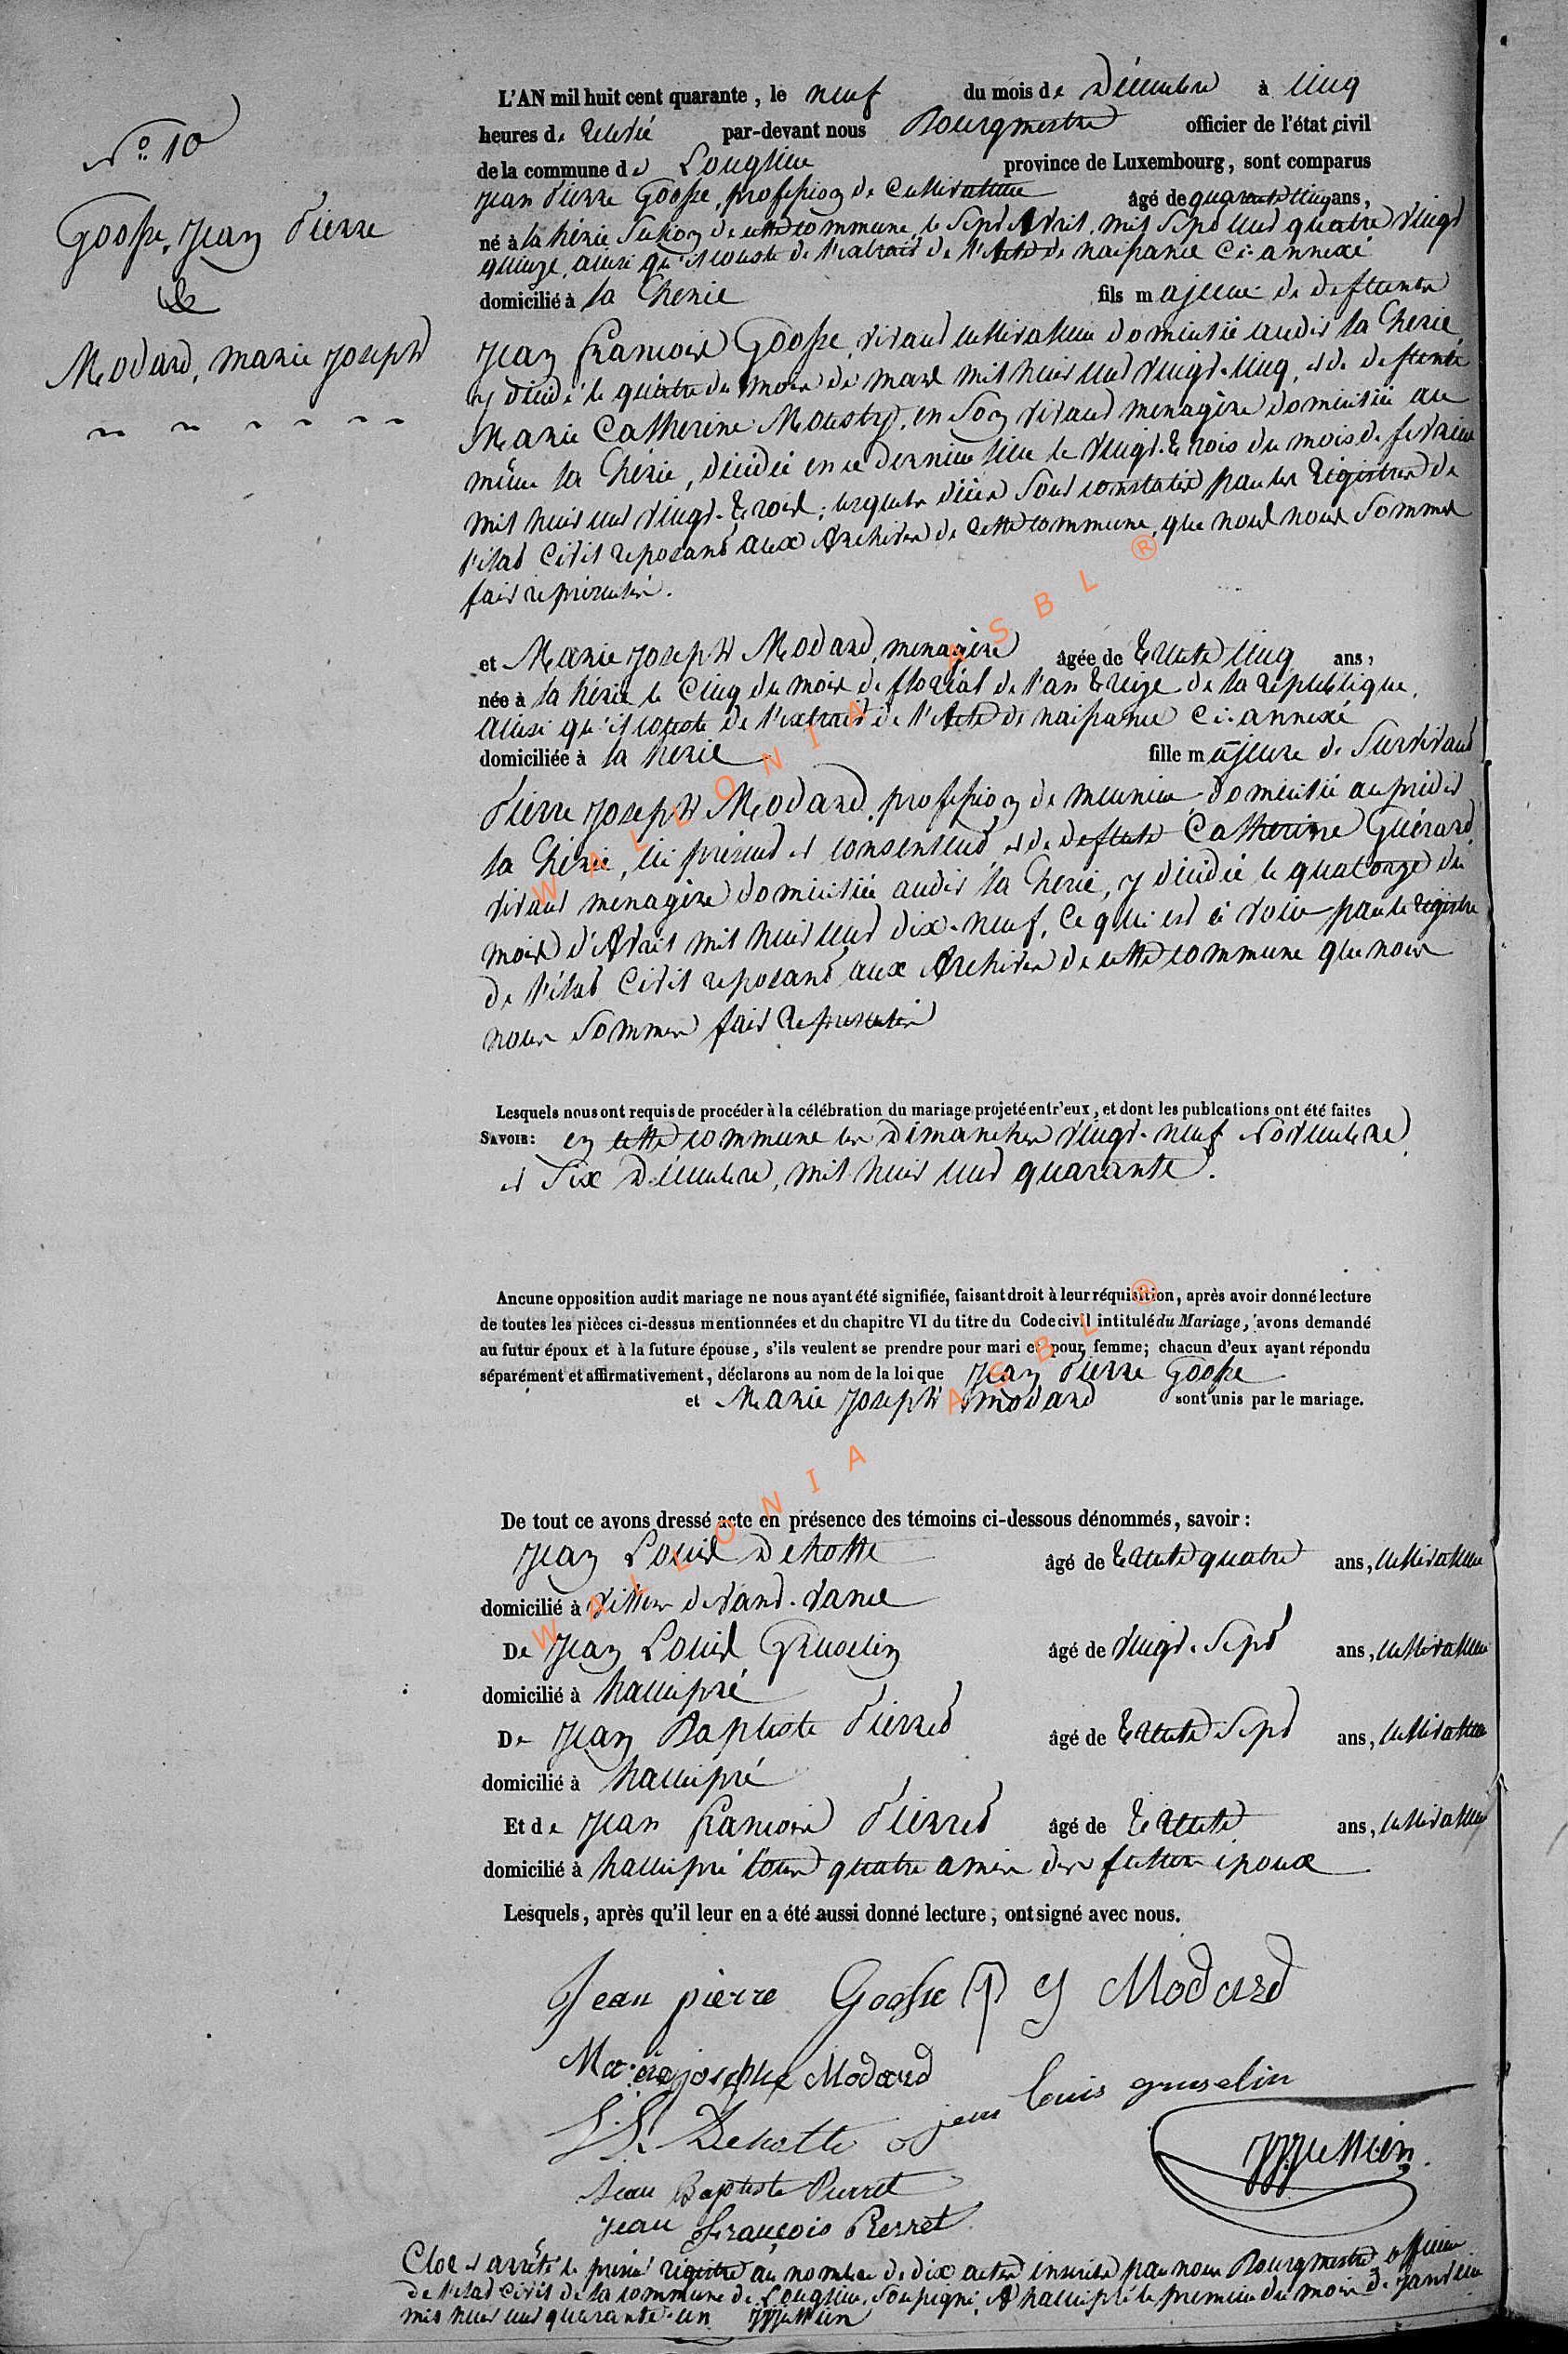 N.° 10
Goosse, Jean Pierre
&
Modard, marie joseph
L'AN mil huit cent quarante, le neuf du mois de Décembre à cinq
heures de relevée par-devant nous Bourgmestre officier de l'état civil
de la commune de Longlier province de Luxembourg, sont comparus
Jean Pierre Goosse, profession de Cultivateur âgé de quarante cinq ans,
né à la hérie Section de cette commune, le Sept Avril, mil Sept cent quatre vingt
quinze, ainsi qu'il conste de l'extrait de l'Acte de naissance Ci-annexé
domicilié à la Cherie fils majeur de defunts
Jean François Goosse, vivant cultivateur domicilié audit la Cherie,
y décédé le quatre du mois de mars mil huit cent vingt-cinq, et de defunte
Marie Catherine Moustry, en Son vivant menagère domiciliée au
même la Chérie, décédée en ce dernier lieu le vingt-trois du mois de fevrier
mil huit cent vingt-trois; lesquels décès Sont constatés par les régistres de
l'état Civil reposant aux Archives de cette commune, que nous nous Sommes
fait représenter.
et Marie Joseph Modard, menagère âgée de trente cinq ans,
née à la hérie le Cinq du mois de floréal de l'an treize de la république,
ainsi qu'il conste de l'extrait de l'Acte de naissance Ci-annexé
domiciliée à la herie fille majeure de Survivant
Pierre Joseph Modard, profession de meunier domicilié au prédit
la Chérie, ici présent et consentant, et de defunte Catherine Guérard,
vivant menagère domiciliée audit la Cherie, y décédée le quatorze du
mois d'Avril mil huit cent dix-neuf, Ce qui est à voir par le régistre
de l'état Civil reposant aux Archives de cette commune que nous
nous Sommes fait representer
Lesquels nous ont requis de procéder à la célébration du mariage projeté entr'eux, et dont les publcations ont été faites
SAVOIR: en cette commune les Dimanches vingt-neuf Novembre
et Six Décembre, mil huit cent quarante.
Ancune opposition audit mariage ne nous ayant été signifiée, faisant droit à leur réquisition, après avoir donné lecture
de toutes les pièces ci-dessus mentionnées et du chapitre VI du titre du Code civil intitulé du Mariage, avons demandé
au futur époux et à la future épouse, s'ils veulent se prendre pour mari et pour femme; chacun d'eux ayant répondu
séparément et affirmativement, déclarons au nom de la loi que Jean Pierre Goosse
et Marie Joseph modard sont unis par le mariage.
De tout ce avons dressé acte en présence des témoins ci-dessous dénommés, savoir:
Jean Louis Dehotte âgé de trente quatre ans, cultivateur
domicilié à Villers devant-
De Jean Louis Gruselin âgé de vingt-Sept ans, cultivateur
domicilié à hamipré
De Jean Baptiste Pierret âgé de trente Sept ans, cultivateur
domicilié à hamipré
Et de Jean François Pierret âgé de trente ans, cultivateur
domicilié à hamipré tous quatre amis des futurs époux
Lesquels, après qu'il leur en a été aussi donné lecture, ont signé avec nous.
Jean pierre Goosse P J Modard
Marie josephe Modard
J. L. Dehotte jean louis gruselin
Jean Baptiste Pierret
Jean François Pierret
Clos et arrêté le présent régistre au nombre de dix actes inscrits par nous Bourgmestre officier
de l'etat civil de la commune de Longlier, Soussigné, A hamipré le premier du mois de Janvier
mil huit cent quarante-un
WALLONIA ASBL ®
WALLONIA ASBL ®